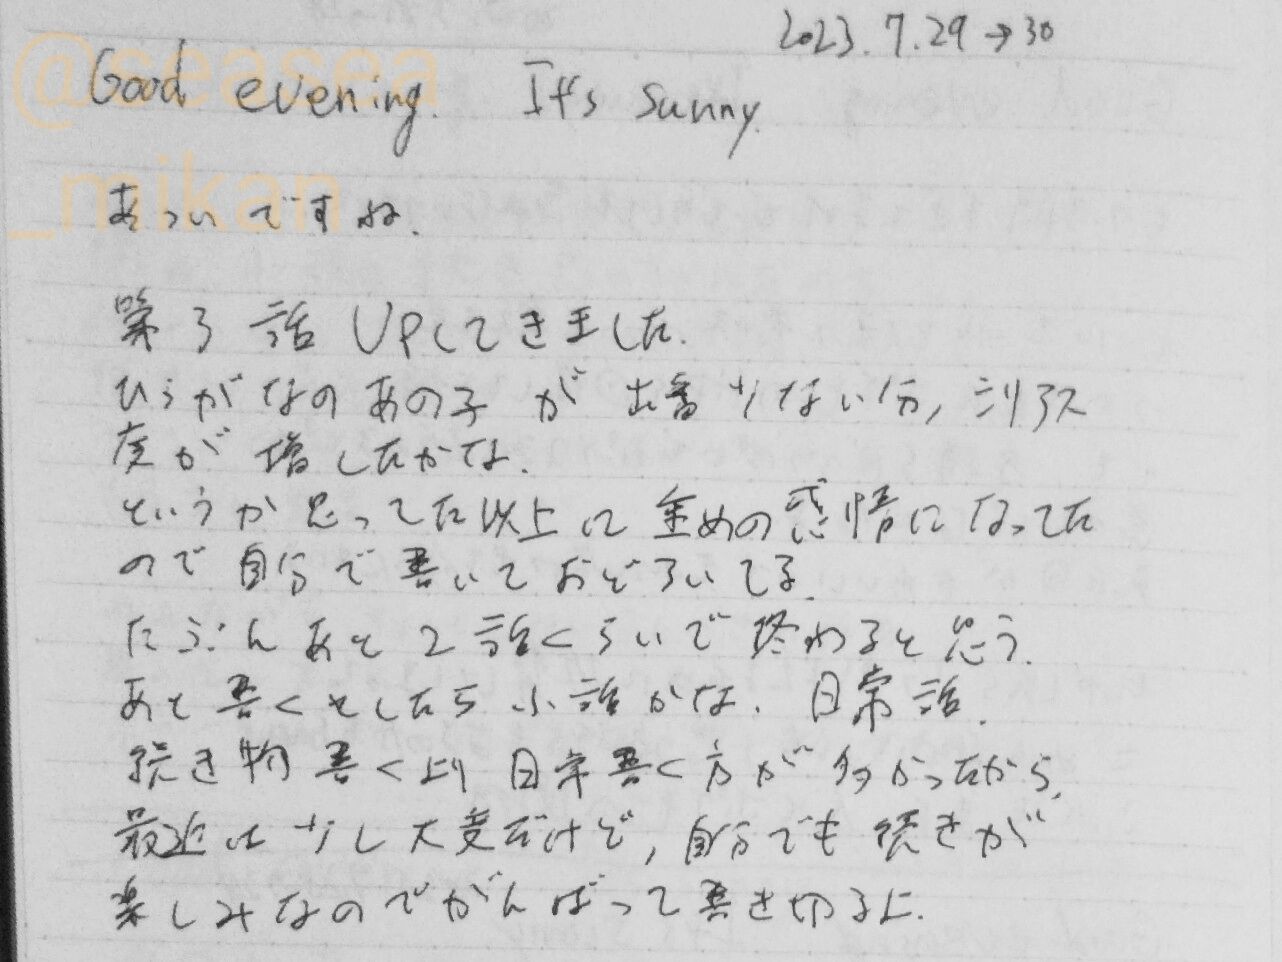 2023.7.29→30
Good evening. It's sunny.
あついですね.
第3話 UPしてきました.
ひらがなのあの子が出番少ない分,シリアス
度が増したかな.
というか思ってた以上に重めの感情になってた
ので自分で書いておどろいてる.
たぶんあと2話くらいで終わると思う.
あと書くとしたら小話かな.日常話.
続き物書くより日常書く方が多かったから,
最近は少し大変だけど,自分でも続きが
楽しみなのでがんばって書き切るよ.
@seasea
_mikan